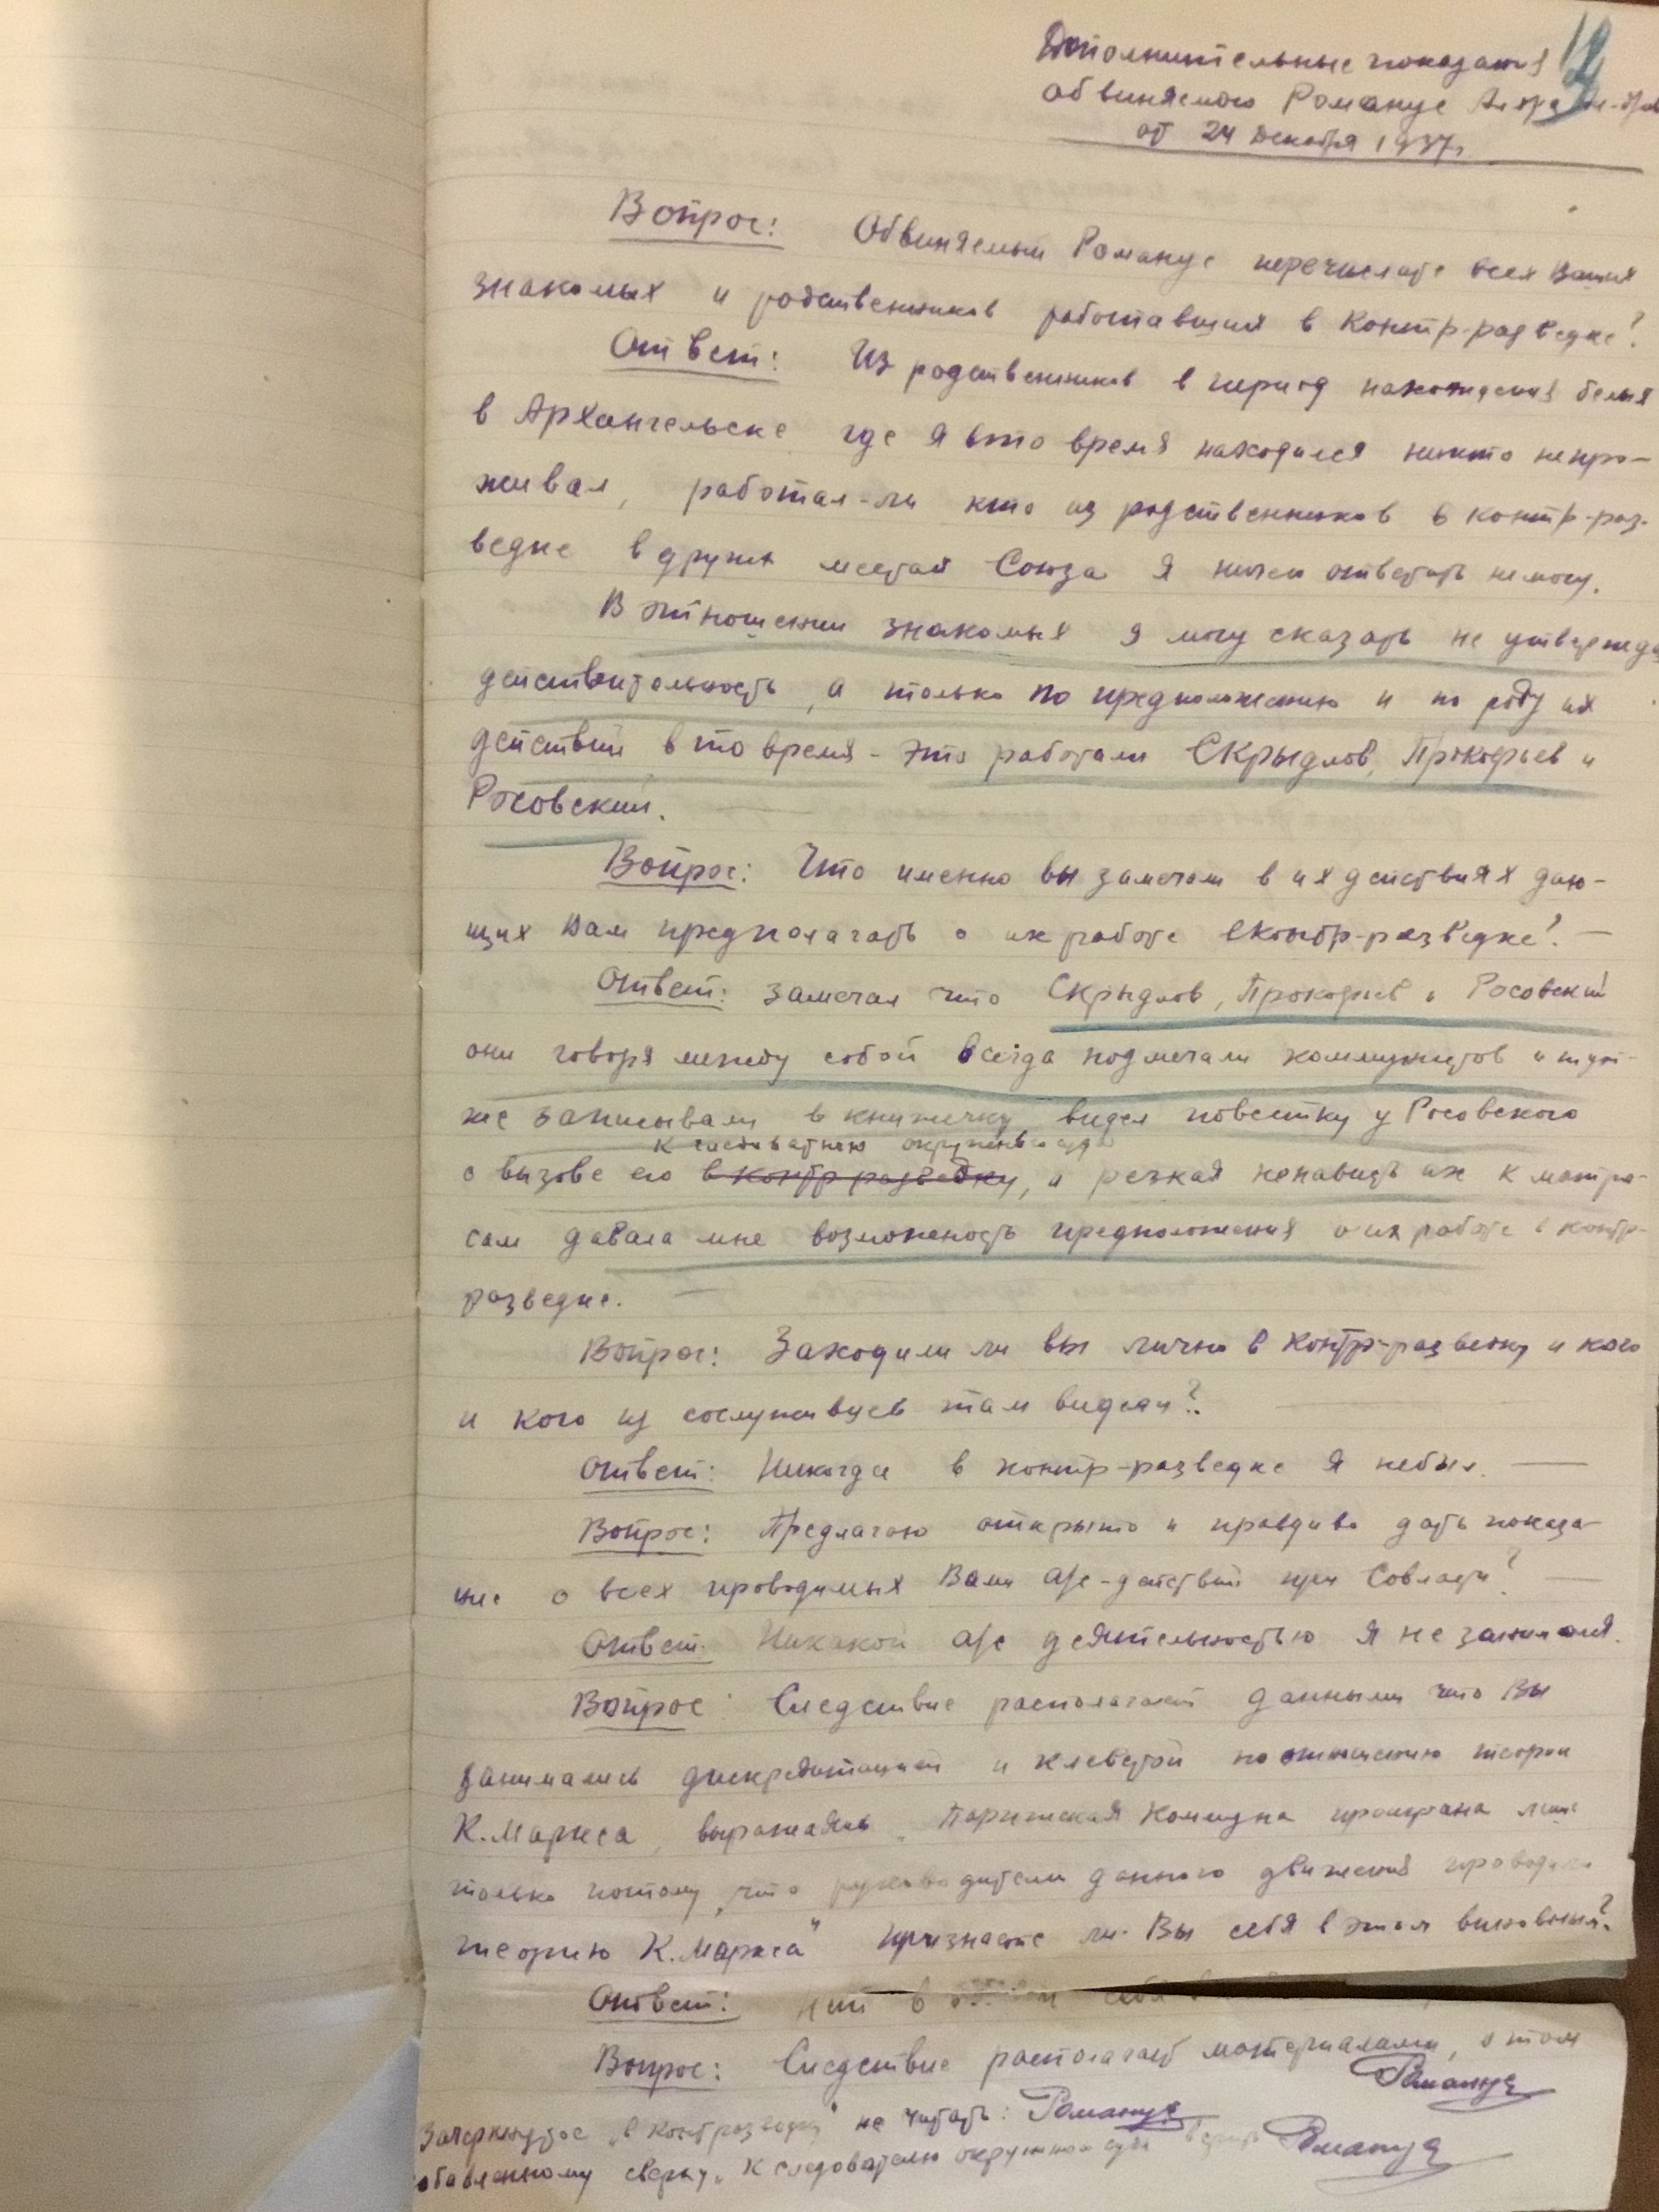 12
Дополнительные показания
обвиняемого Романус
от 24 декабря 1937г.
Вопрос: Обвиняемый Романус перечислите всех Ваших
знакомых и родственников работавших в контр-разведке?
Ответ: Из родственников в период нахождения белых
в Архангельске где я вто время находился никто непро-
живал, работал-ли кто из родственников в контр-раз-
ведке в других местах Союза я ничем ответить немогу.
В отношении знакомых я могу сказать не утверждая
действительность, а только по предположению и по роду их
действий в то время - это работали Скрыдлов, Прокофьев и
Росовский.
Вопрос: Что именно вы замечали в их действиях даю-
щих Вам предполагать о их работе в контр-разведке?
Ответ: Замечал что Скрыдлов, Прокофьев и Росовский
они говоря между собой всегда подмечали коммунистов и тут-
же записывали в книжечку видел повестку у Росовского
к следователю окружного суда
о вызове его в контр разведку, а резкая ненависть их к матро-
сам давала мне возможность предположения о их работе в контр-
разведке.
Вопрос: Заходили ли вы лично в контр-разведку и кого
и кого из сослуживцев там видели?
Ответ: Никогда в контр-разведке я небыл.
Вопрос: Предлагаю открыто и правдиво дать показа-
ние о всех проводимых Вами а/с-действий при Совласти?
Ответ: Никакой а/с деятельностью я не занимался.
Вопрос: Следствие располагает данными что Вы
занимались дискредитацией и клеветой по отношению теории
К. Маркса, выражаясь „Парижская Коммуна проиграна лишь
только потому, что руководители данного движения проводили
теорию К. Маркса" признаете ли Вы себя в этом виновным?
Ответ: Нет в себя
Вопрос: Следствие располагает материалами, о том
Романус
Зачеркнутое „в контрразведку" не читать: Романус
обавленному сверху „К следователю окружного суда верить Романус